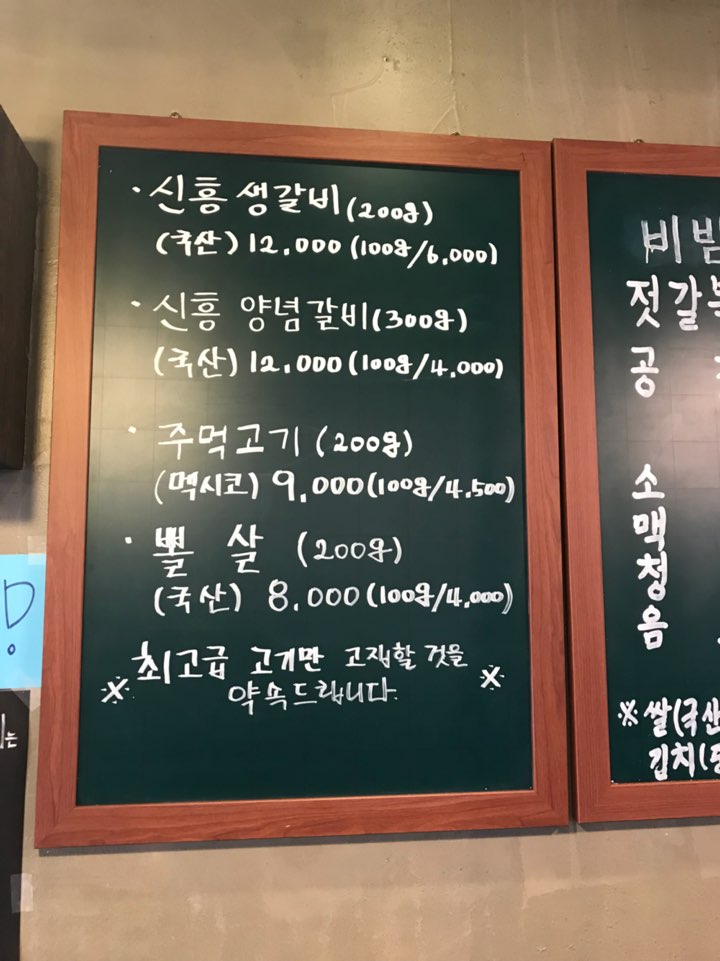 · 신흥 생갈비 (200g)
(국산) 12,000 (100g/6,000)
· 신흥 양념갈비 (300g)
(국산) 12,000 (100g/4,000)
· 주먹고기 (200g)
(멕시코) 9,000 (100g/4,500)
· 뽈 살 (200g)
(국산) 8,000 (100g/4,000)
※ 최고급 고기만 고재할 것을 ※
약속드립니다.
비빔
젓갈
공
소
맥
청
음
※ 쌀(국산
김치(